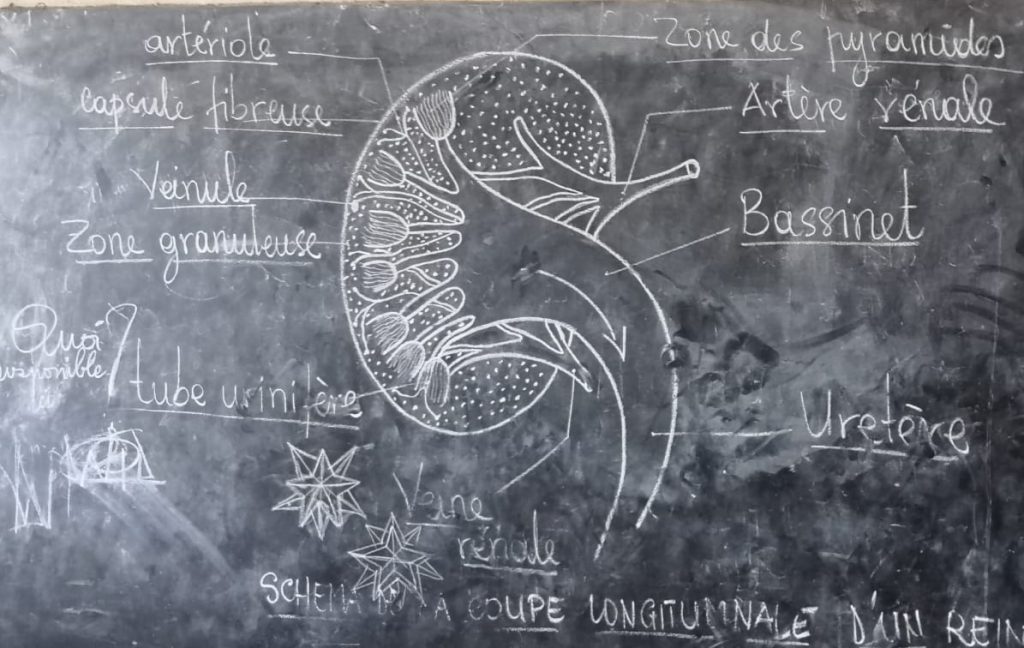 artériole
Zone des pyramides
capsule fibreuse
Artère rénale
Veinule
Bassinet
Zone granuleuse
Quoi
tube urinifère
Uretère
Veine
rénale
SCHEMA COUPE LONGITUDINALE D'UN REIN